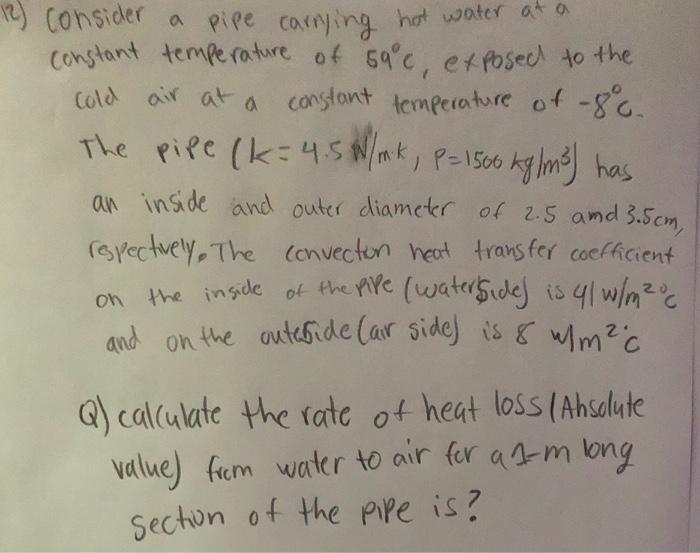 12) Consider a pipe carrying hot water at a
constant temperature of 59°c, exposed to the
cold air at a constant temperature of -8°c.
The pipe (k=4.5 W/mk, P=1500 kg/m³) has
an inside and outer diameter of 2.5 amd 3.5cm,
respectvely. The convecton heat transfer coefficient
on the inside of the pipe (waterside) is 41 w/m²°c
and on the outeside (air side) is 8 w/m²°c
Q) calculate the rate of heat loss (Absolute
value) from water to air for a 1-m long
section of the pipe is?